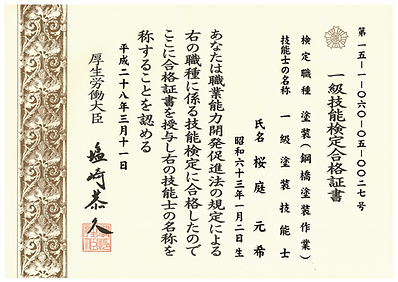 第一五-一-〇六〇-〇五-〇〇二七号
一級技能検定合格証書
検定職種 塗装(鋼橋塗装作業)
技能士の名称 一級塗装技能士
氏名 桜庭元希
昭和六十三年一月二日生
あなたは職業能力開発促進法の規定による
右の職種に係る技能検定に合格したので
ここに合格証書を授与し右の技能士の名称を
称することを認める
平成二十八年三月十一日
厚生労働大臣 塩崎恭久